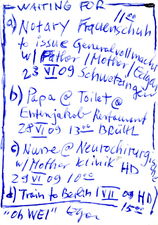 WAITING FOR
11:00
a) Notary Frauenschuh
to issue Generalvollmacht
w/ Father/Mother/Egon
23 VI 09 Schwetzingen
b) Papa @ Toilet @
Entenjakob-Restaurant
28 VI 09 13:00 BRÜHL
c) Nurse @ Neurochirurgie
w/ Mother Klinik HD
29 VI 09 10:00
d) Train to Berlin 1 VII 09 HD
15:00
"Oh WEI" Egon